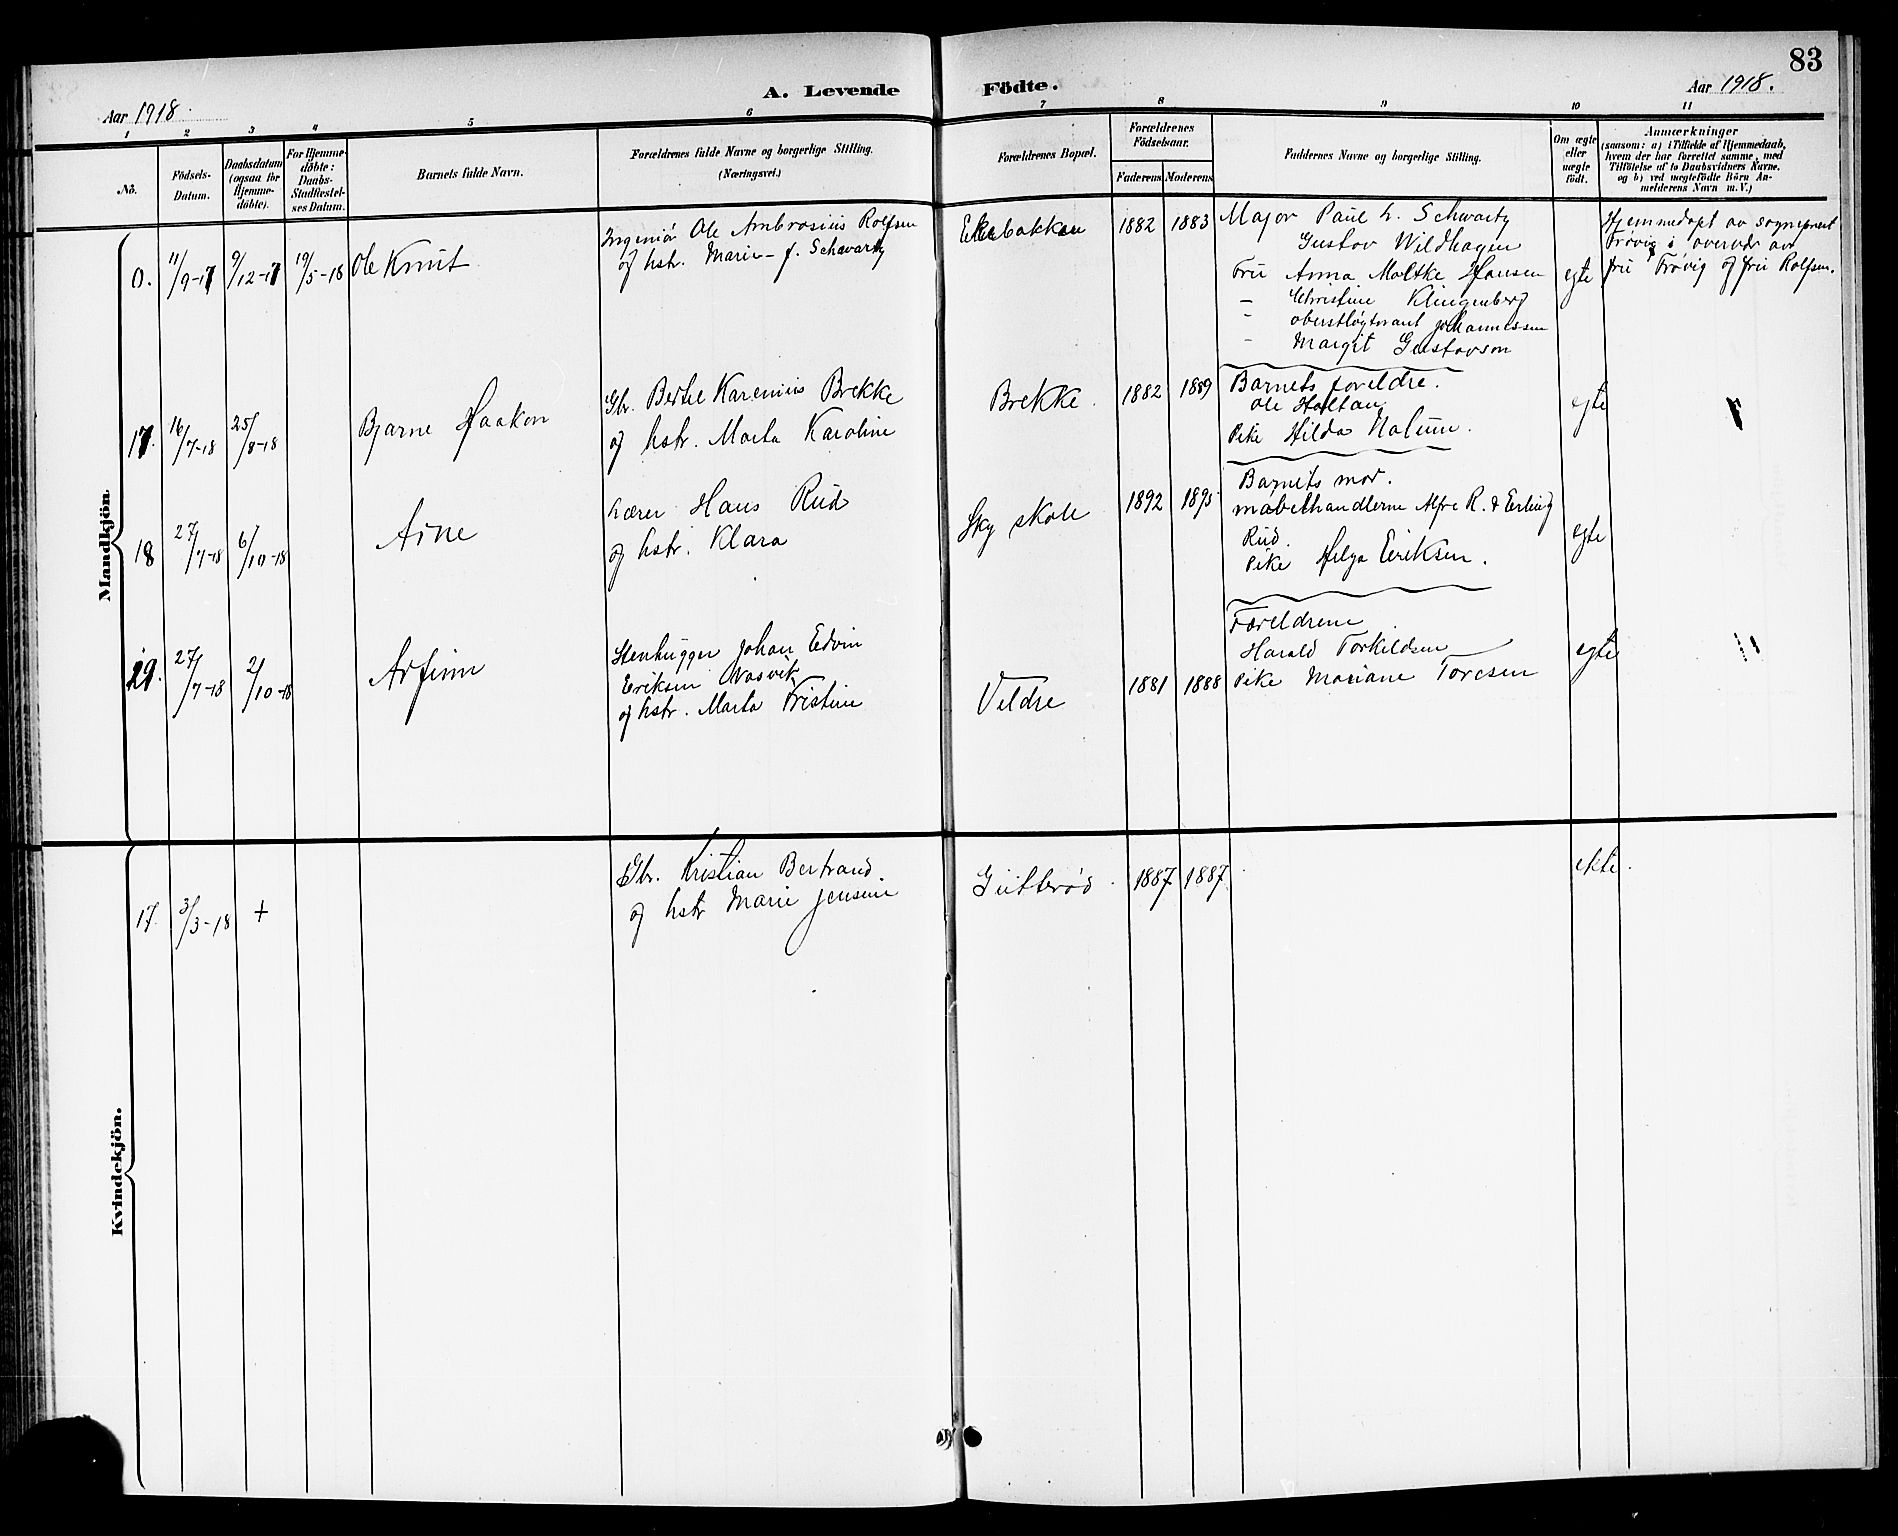 83
Aar 1918.
A. Levende Födte.
Aar 1918.
1 2 3 4 5 6 7 8 9 10 11
No.
Födsels-
Datum.
Daabsdatum
(ogsaa for
Hjemme-
döbte).
For Hjemme-
döbte:
Daabs-
Stadfæstel-
ses Datum.
Barnets fulde Navn.
Forældrenes fulde Navne og borgerlige Stilling.
(Næringsvei.)
Forældrenes Bopæl.
Forældrenes
Födselsaar.
Faderens Moderens
Faddernes Navne og borgerlige Stilling.
Om ægte
eller
uægte
födt.
Anmærkninger
(saasom: a) i Tilfælde af Hjemmedaab,
hvem der har forrettet samme, med
Tilföielse af to Daabsvidners Navne,
og b) ved uægtefödte Börn An-
melderens Navn m. V.)
Mandkjön.
0. 11/9-17 9/12-17 19/5-18 Ole Knut
Ingeniør Ole Ambrosius Rolfsen
og hstr. Marie f. Schwartz
Ekebakken 1882 1883
Major Paul L. Schwartz
Gustav Wildhagen
Fru Anna Moltke Hansen
– Christine Klingenberg
– oberstløgtnant Johannessen
– Margit Gustavson
egte
Hjemmedøpt av sogneprest
Trøvig i overvær av
fru Trøvig og fru Rolfsen.
17. 16/7-18 25/8-18 Bjarne Haakon
Gbr. Bertel Karenius Brekke
og hstr. Marta Karoline
Brekke. 1882 1889
Barnets foreldre.
Ole Holtan
Pike Hilda Nalum.
egte
18 27/7-18 6/10-18 Arne
Lærer Hans Rud
og hstr. Klara
Sky skole 1892 1895
Barnets mor.
møbelhandlerne Alfr. R. & Erling
Rud.
Pike Helga Eriksen.
egte
19. 27/7-18 2/10-18 Arfinn
Stenhugger Johan Edvin
Eriksen Nasvik
og hstr. Marta Kristine
Veldre 1881 1888
Foreldrene
Harald Torkildsen
Pike Mariane Toresen
egte
Kvindekjön.
17. 3/3-18 +
Gbr. Kristian Bertrand
og hstr Marie Jensine
Gutterød. 1887 1887
ekte